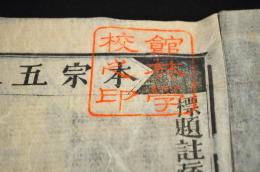 館林学
校之印
本宗五
標題註